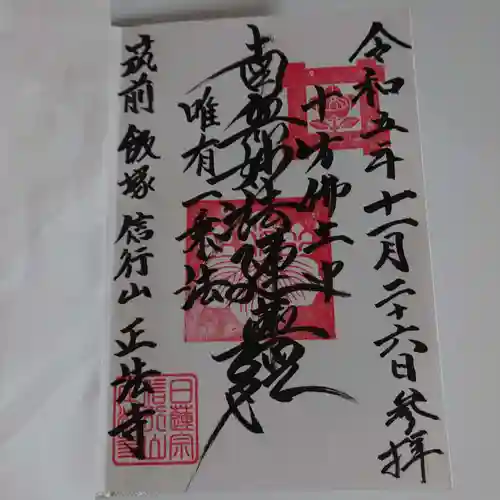 令和五年十一月二十六日参拝
十方佛土中
南無妙法蓮華經
唯有一乗法
筑前 飯塚 信行山 正法寺
日蓮宗
信行山
正法寺